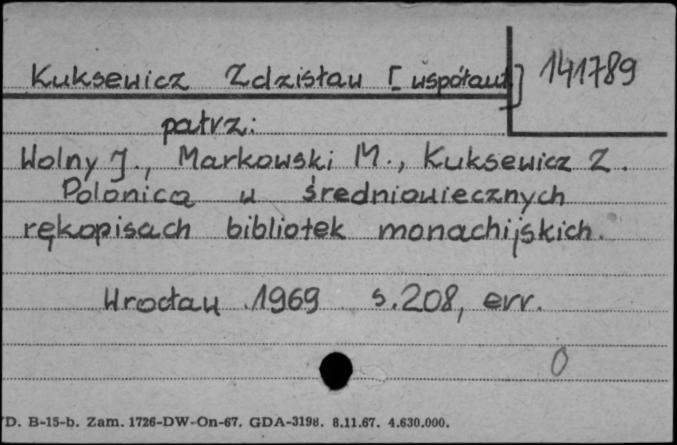 Kuksewicz Zdzisław [współaut.] 141789
patrz:
Wolny J., Markowski M., Kuksewicz Z.
Polonica w średniowiecznych
rękopisach bibliotek monachijskich.
Wrocław 1969 s.208, err.
0
D. B-15-b. Zam. 1726-DW-On-67. GDA-3198. 8.11.67. 4.630.000.